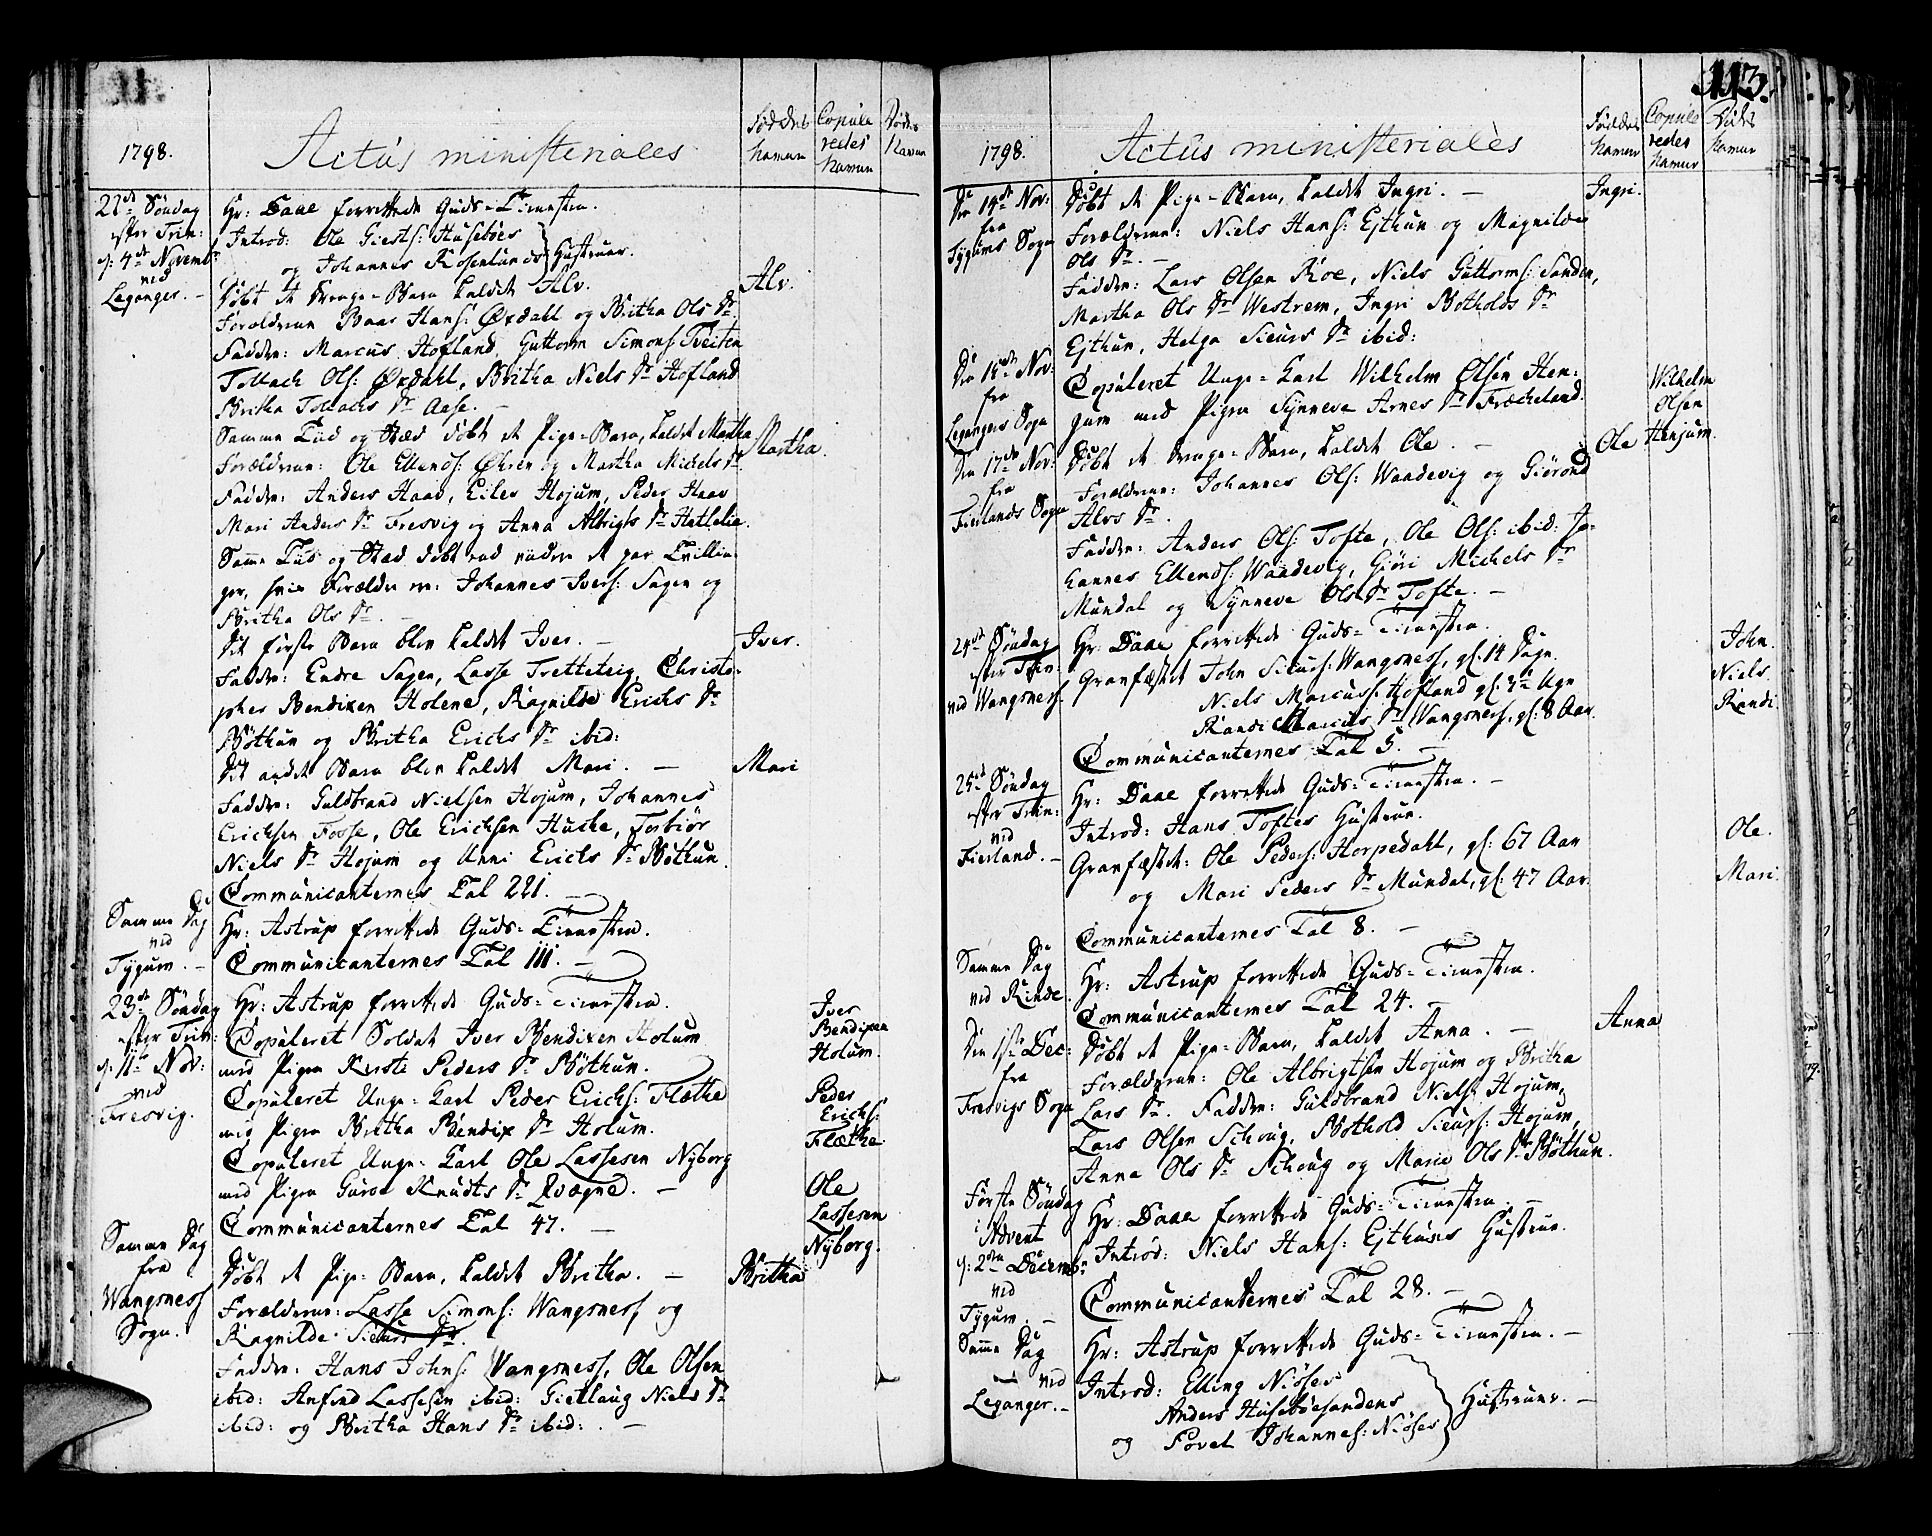 1798.
Actus ministeriales
Føddes Navne
Copule redes Navne
Dødes Navne
22de Søndag
efter Trin:
d: 4de Novembr
ved
Leganger. -
Hr: Daae forrettede Guds-Tienesten.
Introd: Ole Giests: Husebøes
og Johannes Rosenlunds Hustruer.
Døbt et Drenge-Barn kaldet Alv.
Alv.
Forældrene Baar Hans: Øxdahl og Britha Ols Dr.
Faddere: Marcus Hofland, Guttorm Simons: Tveiten
Tollach Ols: Øxdahl, Britha Niels Dr Hofland
Britha Tollachs Dr Aase. -
Samme Tiid og Stæd døbt et Pige-Barn, kaldet Martha
Martha.
Forældrene: Ole Ellends: Øhren og Martha Michels Dr.
Faddere: Anders Haav, Eiler Hojum, Peder Haav
Mari Anders Dr Fresvig og Anna Albrigts Dr Hatlelie.
Samme Tiid og Stæd døbt et par Tvillin-
ger, hvis Forældre er: Johannes Ivers: Sagen og
Britha Ols Dr. -
Det første Barn blev kaldet Iver. -
Iver.
Faddere: Endre Sagen, Lasse Tretteteig, Christo-
pher Bendixen Holene, Ragnilde Erichs Dr
Bøthun og Britha Erichs Dr ibid:
Det andet Barn blev kaldet Mari. -
Mari
Faddere: Guldbrand Nielsen Hojum, Johannes
Erichsen Fosse, Ole Erichsen Huske, Torbiør
Niels Dr Hojum og Unni Erichs Dr Bøthun.
Communicanternes Tal 221. -
Samme Dag
ved
Tygum. -
Hr: Astrup forrettede Guds-Tienesten.
Communicanternes Tal 111. -
23de Søndag
efter Trin:
d: 11te Nov:
ved
Fresvig.
Hr: Astrup forrettede Guds-Tienesten.
Copuleret Soldat Iver Bendixen Holum
med Pigen Kerste Peders Dr Bøthun.
Iver
Bendixen
Holum.
Copuleret Unge-Karl Peder Erichs: Flæthe
med Pigen Britha Bendix Dr Holum.
Peder
Erichs:
Flæthe.
Copuleret Unge-Karl Ole Lassesen Nyborg
med Pigen Guroe Knudts Dr Qvagne. -
Ole
Lassesen
Nyborg.
Communicanternes Tal 47. -
Samme Dag
fra
Wangsness
Sogn.
Døbt et Pige-Barn, kaldet Britha. -
Britha
Forældrene: Lasse Simons: Wangsness og
Ragnilde Sieurs Dr.
Faddere: Hans Johns: Wangsness, Ole Olsen
ibid: Anfind Lassesen ibid: Giertlaug Niels Dr
ibid: og Britha Hans Dr ibid: -
113.
1798.
Actus ministeriales
Føddes Navne
Copule redes Navne
Døde Navne
Den 14de Nov:
fra
Tygums Sogn
Døbt et Pige-Barn, kaldet Ingri. -
Ingri.
Forældrene: Niels Hans: Ejthun og Magnilde
Ols Dr. -
Faddere: Lars Olsen Roe, Niels Guttorms: Sanden,
Martha Ols Dr Westrem, Ingri Botholds Dr
Ejthun, Helga Sieurs Dr ibid:
Den Nov:
fra
Legangers Sogn
Copuleret Unge-Karl Wilhelm Olsen Hen-
jum med Pigen Synneva Arnes Dr Fræcheland.
Wilhelm
Olsen
Henjum.
Den 17de Nov:
fra
Fierlands Sogn
Døbt et Drenge-Barn, kaldet Ole. -
Ole
Forældrene: Johannes Ols: Waadevig og Giørond
Alvs Dr.
Faddere: Anders Ols: Tofte, Ole Ols: ibid: Jo-
hannes Ellends: Waadevig, Giøri Michels Dr
Mundal og Synneve Ols Dr Tofte. -
24de Søndag
efter Trin:
ved Wangsness.
Hr: Daae forrettede Guds-Tienesten.
Granfæstet John Sieurs: Wangsness, gl: 14 Dage
Niels Marcuss: Hofland gl: Uger
Randi Marcus Dr Wangsness, gl: 8 Aar.
John.
Niels.
Randi.
Communicanternes Tal 5. -
25de Søndag
efter Trin:
ved
Fierland. -
Hr: Daae forrettede Guds-Tienesten. -
Introd: Hans Toftes Hustrue.
Granfæstet: Ole Peders: Horpedahl, gl: 67 Aar
og Mari Peders Dr Mundal, gl: 47 Aar.
Ole.
Mari.
Communicanternes Tal 8. -
Samme Dag
ved Rinde.
Hr: Astrup forrettede Guds-Tienesten.
Communicanternes Tal 24. -
Den 1ste Dec:
fra
Fresvigs Sogn
Døbt et Pige-Barn, kaldet Anna. -
Anna
Forældrene: Ole Albrigtsen Hojum og Britha
Lars Dr. Faddere: Guldbrand Niels: Hojum,
Lars Olsen Schoug, Bothold Sieurs: Hojum,
Anna Ols Dr Schoug og Marie Ols Dr Bøthun.
Første Søndag
i
Advent
d: 2den Decembr
ved
Tygum. -
Hr: Daae forrettede Guds-Tienesten. -
Introd: Niels Hans: Ejthuns Hustrue.
Communicanternes Tal 28. -
Samme Dag
- ved
Leganger. -
Hr: Astrup forrettede Guds-Tienesten. -
Introd: Elling Niøses
Anders Husebøesandens
og Povel Johannes: Niøses Hustruer. -